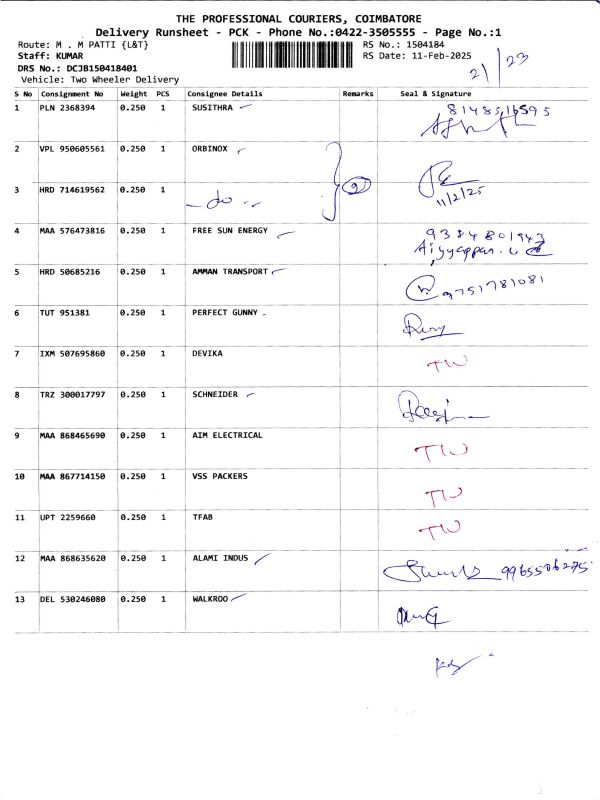 THE PROFESSIONAL COURIERS, COIMBATORE
Delivery Runsheet - PCK - Phone No.:0422-3505555 - Page No.:1
Route: M . M PATTI {L&T} RS No.: 1504184
Staff: KUMAR RS Date: 11-Feb-2025
DRS No.: DCJB150418401
Vehicle: Two Wheeler Delivery
2/23
S No Consignment No Weight PCS Consignee Details Remarks Seal & Signature
1 PLN 2368394 0.250 1 SUSITHRA 8148516595
2 VPL 950605561 0.250 1 ORBINOX
3 HRD 714619562 0.250 1 - do - 2 11/2/25
4 MAA 576473816 0.250 1 FREE SUN ENERGY 9384801943
Aiyyappan
5 HRD 50685216 0.250 1 AMMAN TRANSPORT 9751781081
6 TUT 951381 0.250 1 PERFECT GUNNY
7 IXM 507695860 0.250 1 DEVIKA TW
8 TRZ 300017797 0.250 1 SCHNEIDER
9 MAA 868465690 0.250 1 AIM ELECTRICAL TW
10 MAA 867714150 0.250 1 VSS PACKERS TW
11 UPT 2259660 0.250 1 TFAB TW
12 MAA 868635620 0.250 1 ALAMI INDUS 9965506275
13 DEL 530246080 0.250 1 WALKROO